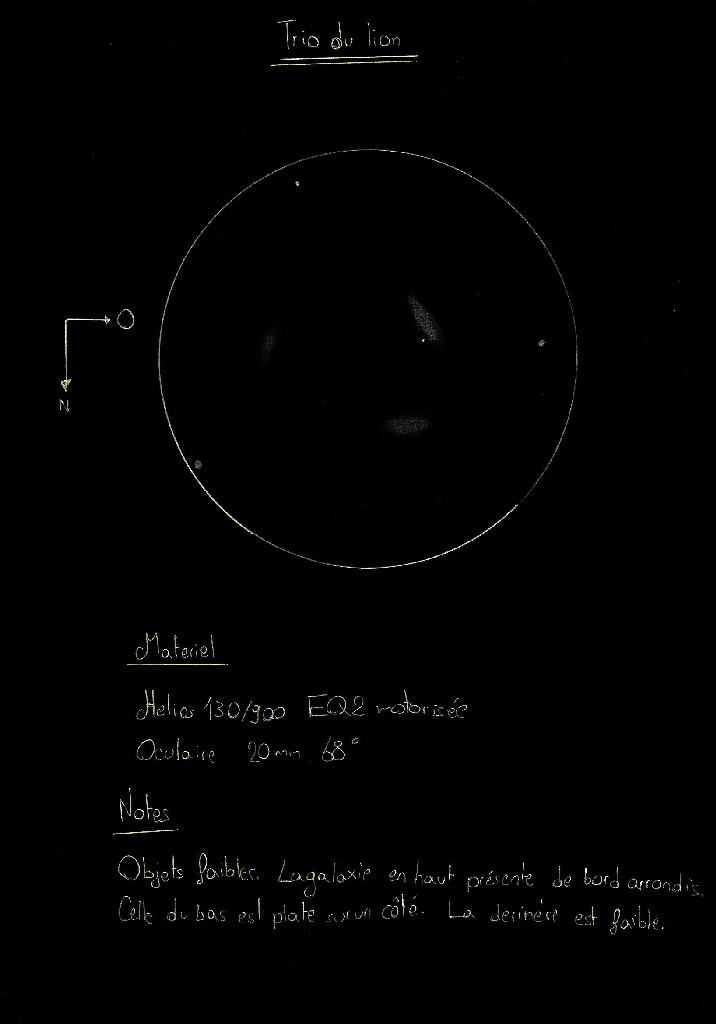 Trio du lion
O
N
Materiel
Helios 130/900 EQ2 motorisée
Oculaire 20mm 68°
Notes
Objets faibles. La galaxie en haut présente de bord arrondis.
Celle du bas est plate sur un côté. La derinére est faible.